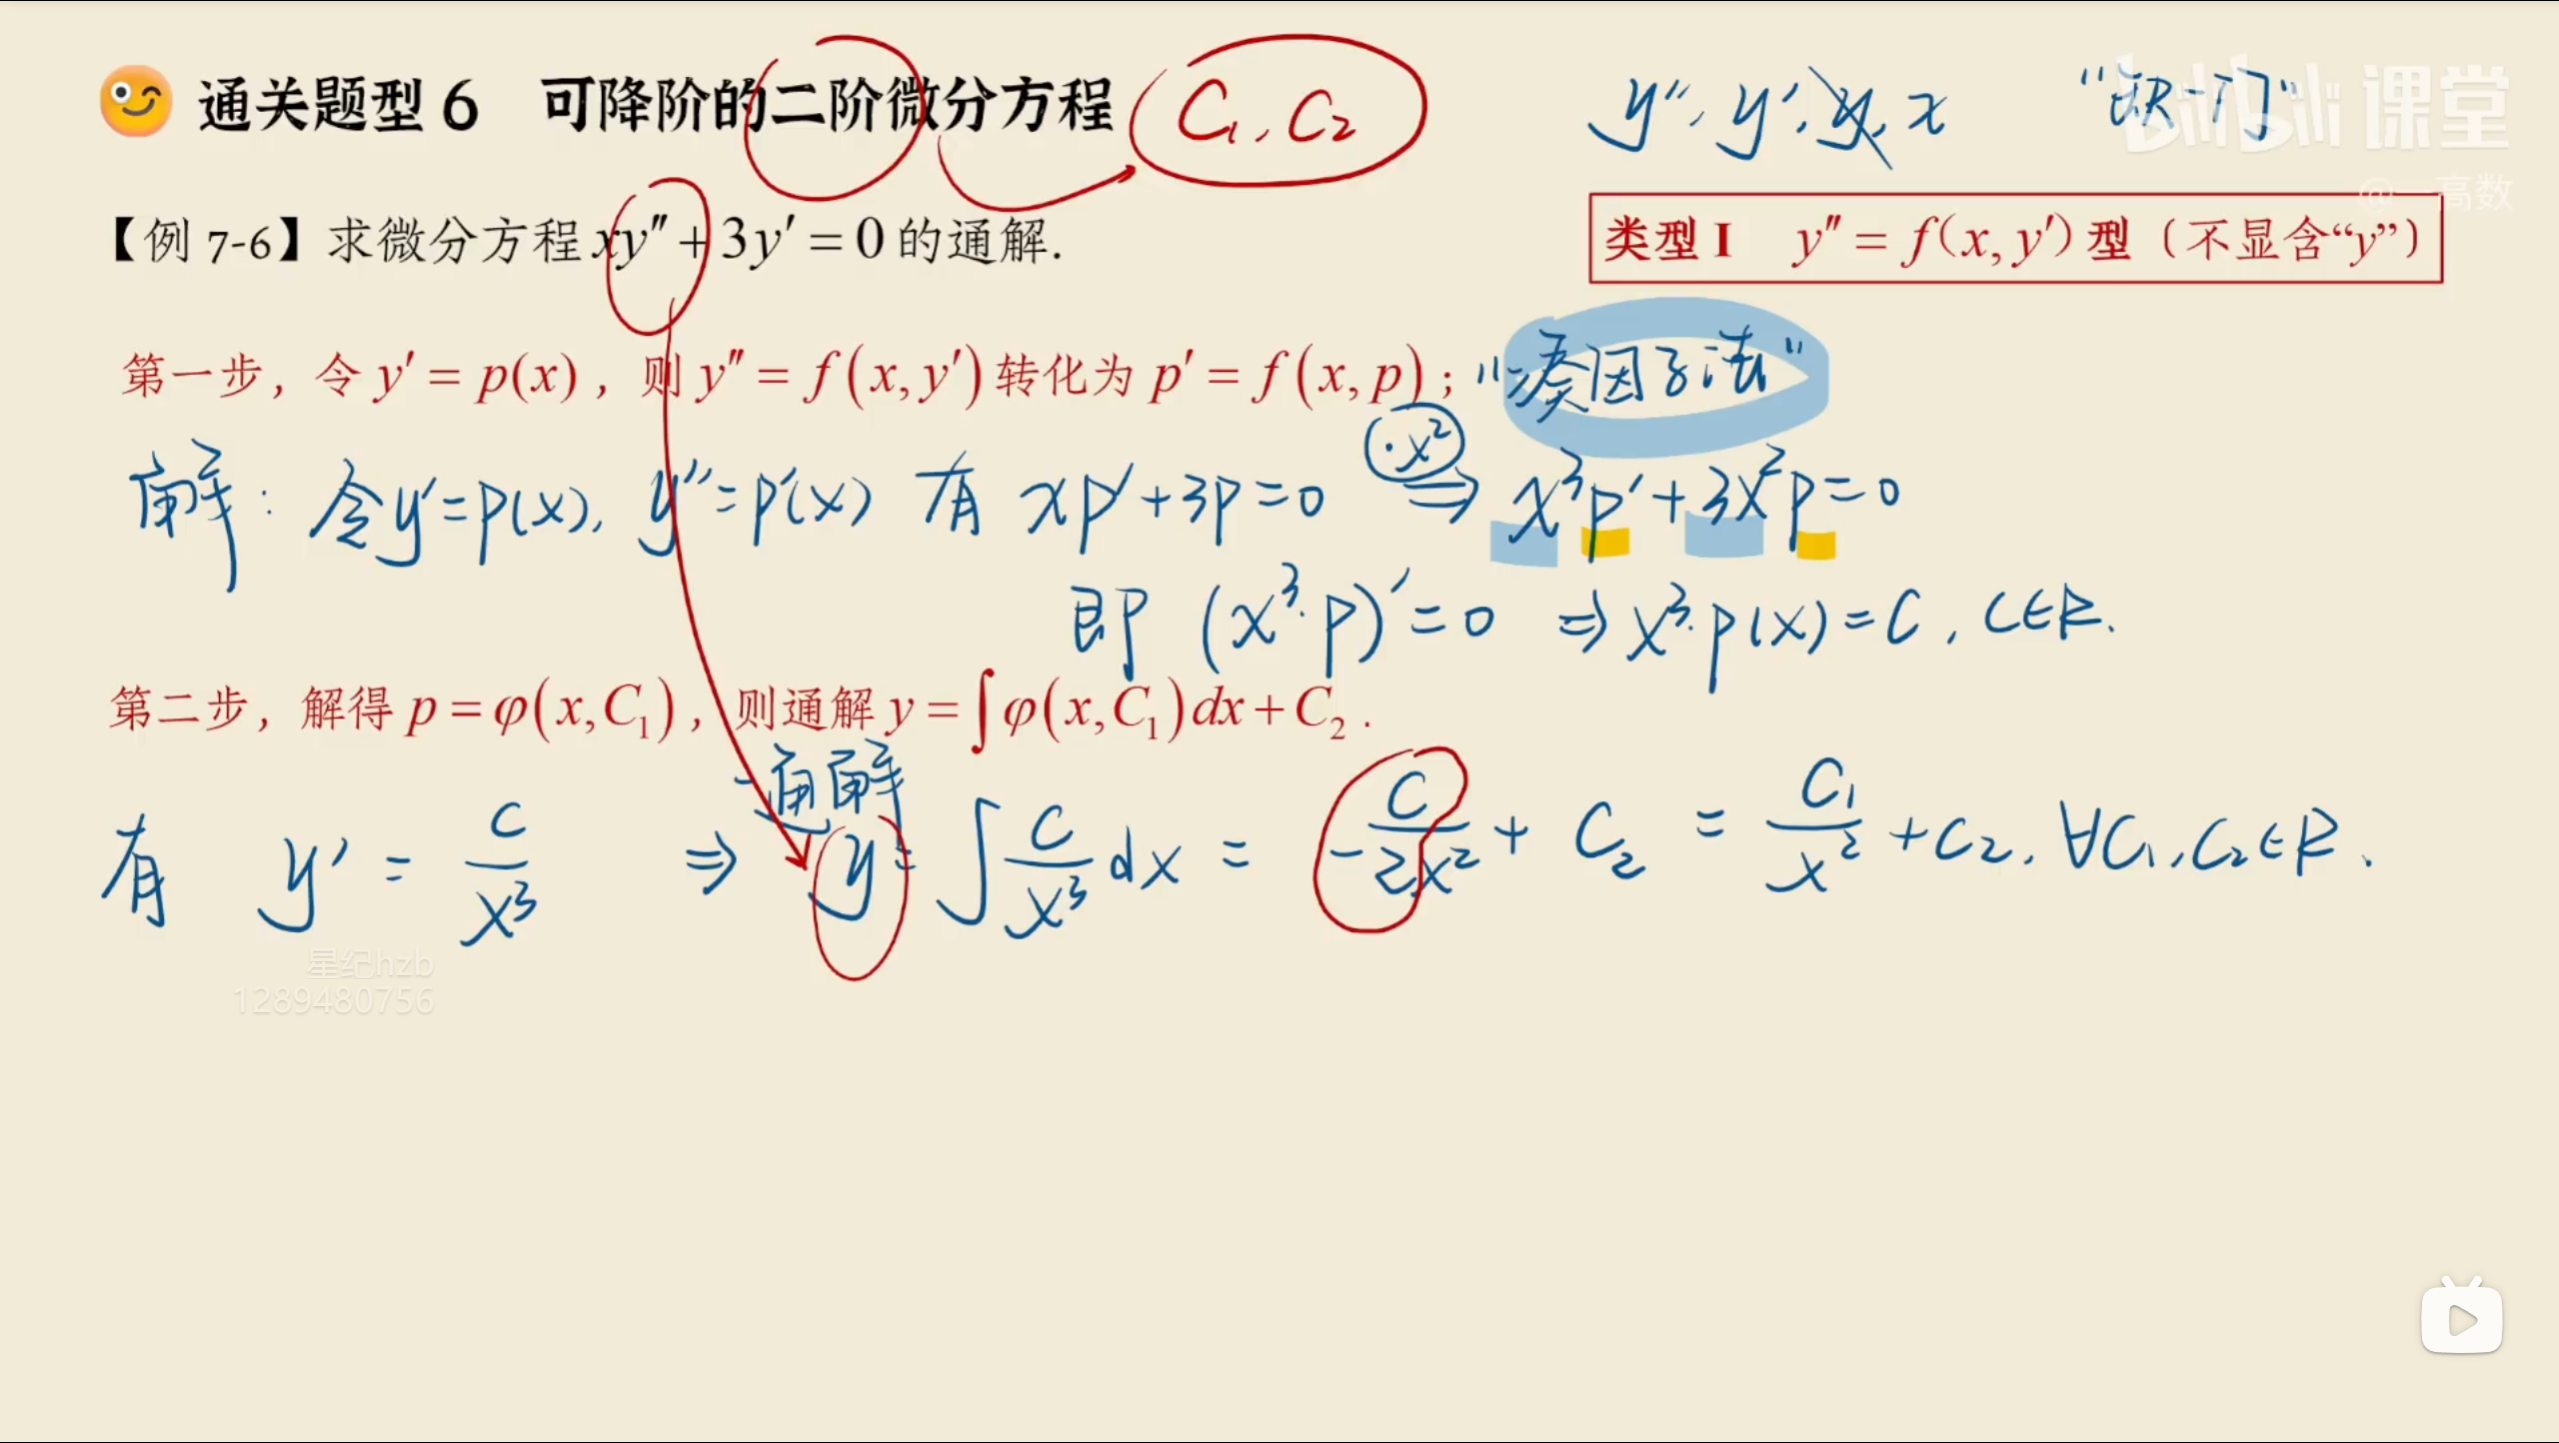 通关题型 6 可降阶的二阶微分方程 C₁, C₂ y'', y', y, x “缺一门”
bilibili 课堂
@一高数
【例 7-6】求微分方程 xy'' + 3y' = 0 的通解.
类型 I y'' = f(x, y') 型（不显含“y”）
第一步，令 y' = p(x)，则 y'' = f(x, y') 转化为 p' = f(x, p)； “凑因子法”
解: 令y'=p(x), y''=p'(x) 有 xp'+3p=0 ·x² ⇒ x³p'+3x²p=0
即 (x³·p)'=0 ⇒ x³·p(x)=C, C∈R.
第二步，解得 p = φ(x, C₁)，则通解 y = ∫φ(x, C₁)dx + C₂.
通解
有 y' = C/x³ ⇒ y = ∫ C/x³ dx = C/-2x² + C₂ = C₁/x² + C₂, ∀C₁, C₂∈R.
星纪hzb
1289480756